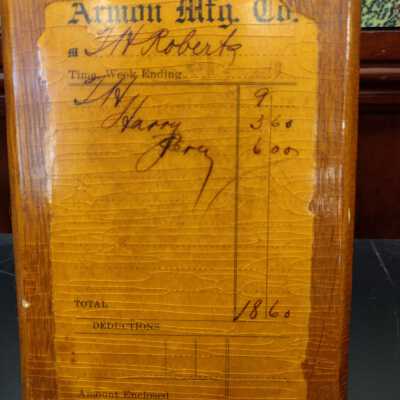 Armon Mfg. Co.
M F H Roberts
Time, Week Ending
F H 9
Harry 3 60
6 00
TOTAL 18 60
DEDUCTIONS
Amount Enclosed